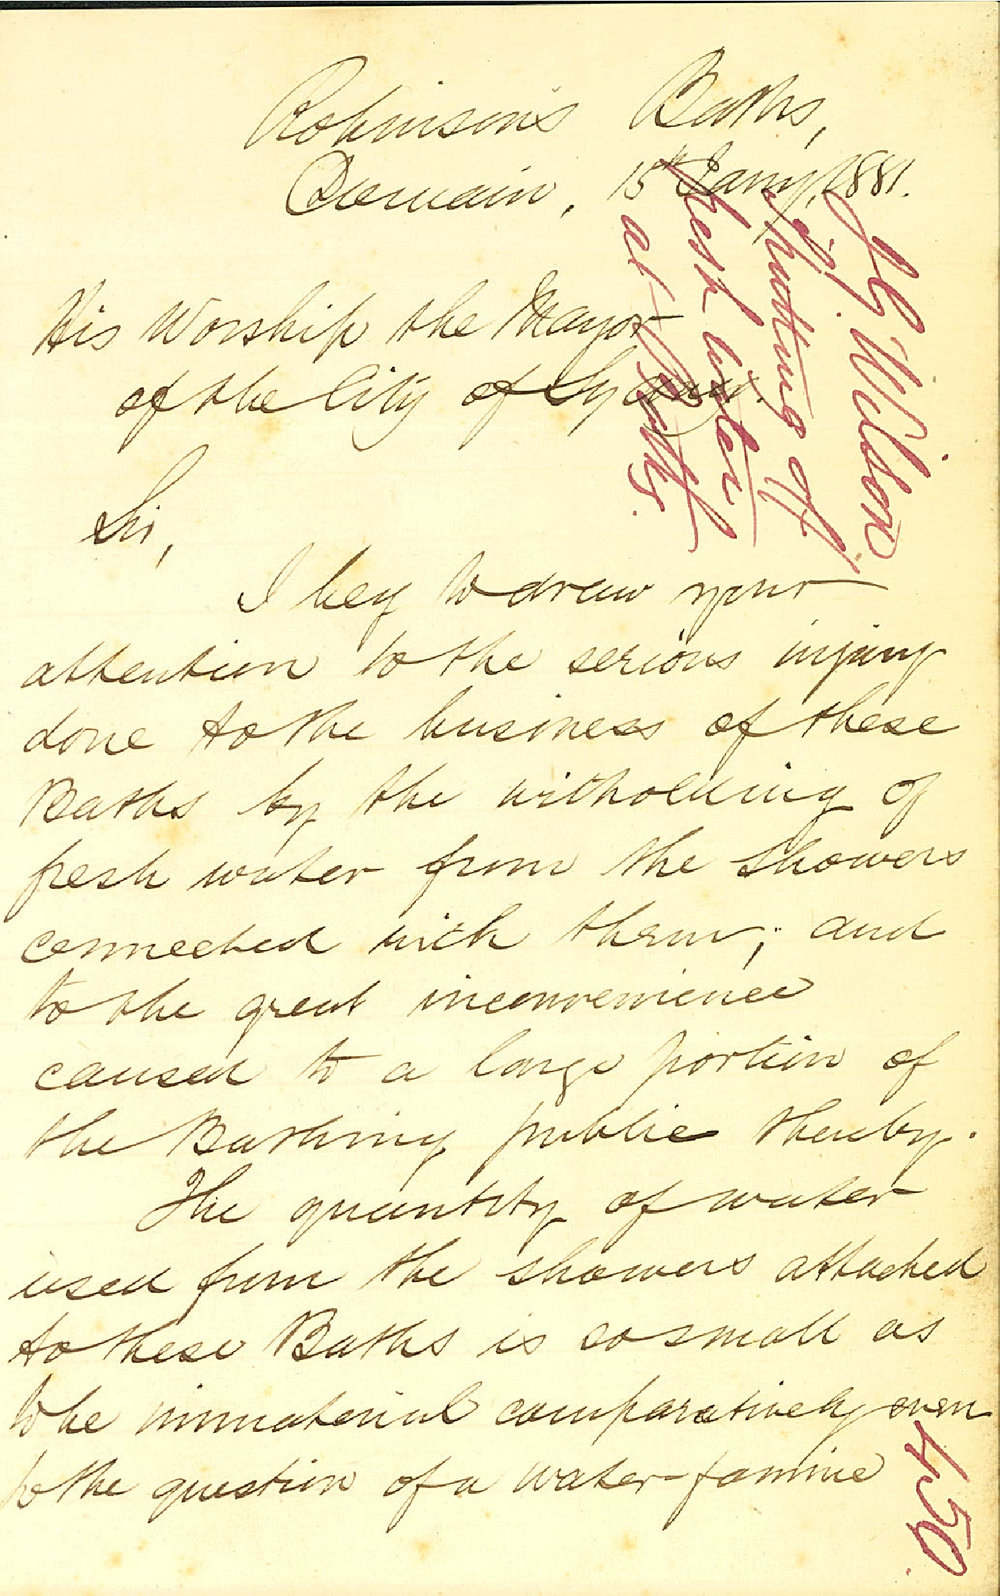 Robinson's Baths,
Domain, 15th Jany, 1881.
His Worship the Mayor
of the City of Sydney.
Sir,
I beg to draw your
attention to the serious injury
done to the business of these
Baths by the witholding of
fresh water from the showers
connected with them; and
to the great inconvenience
caused to a large portion of
the Bathing public thereby.
The quantity of water
used from the showers attached
to these Baths is so small as
to be immaterial comparatively even
to the question of a water-famine
Wilson
shutting off
fresh water
at Baths.
450